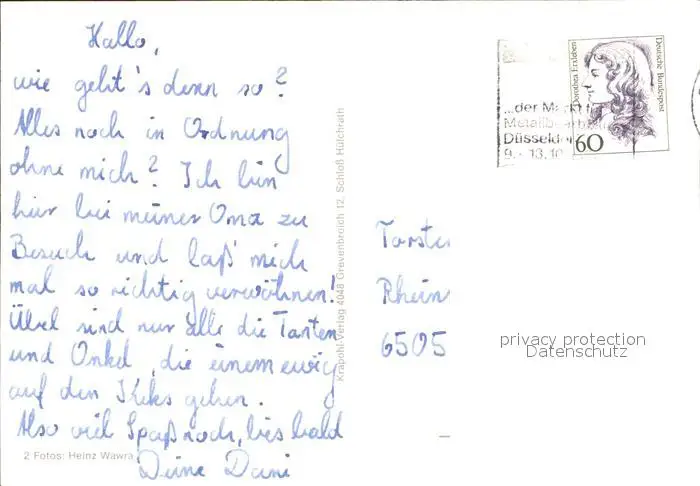 Hallo,
wie geht's denn so?
Alles noch in Ordnung
ohne mich? Ich bin
hier bei meiner Oma zu
Besuch und laß mich
mal so richtig verwöhnen!
Übel sind nur alle die Tanten
und Onkel, die einem ewig
auf den Keks gehen.
Also viel Spaß noch, bis bald
Deine Dani
2 Fotos: Heinz Wawra
Krapohl-Verlag 4048 Grevenbroich 12, Schloß Hülchrath
...der Markt
Düsseldor
9.-13.10
Dorothea Erxleben
Deutsche Bundespost
60
Torste
Rhein
6505
privacy protection
Datenschutz